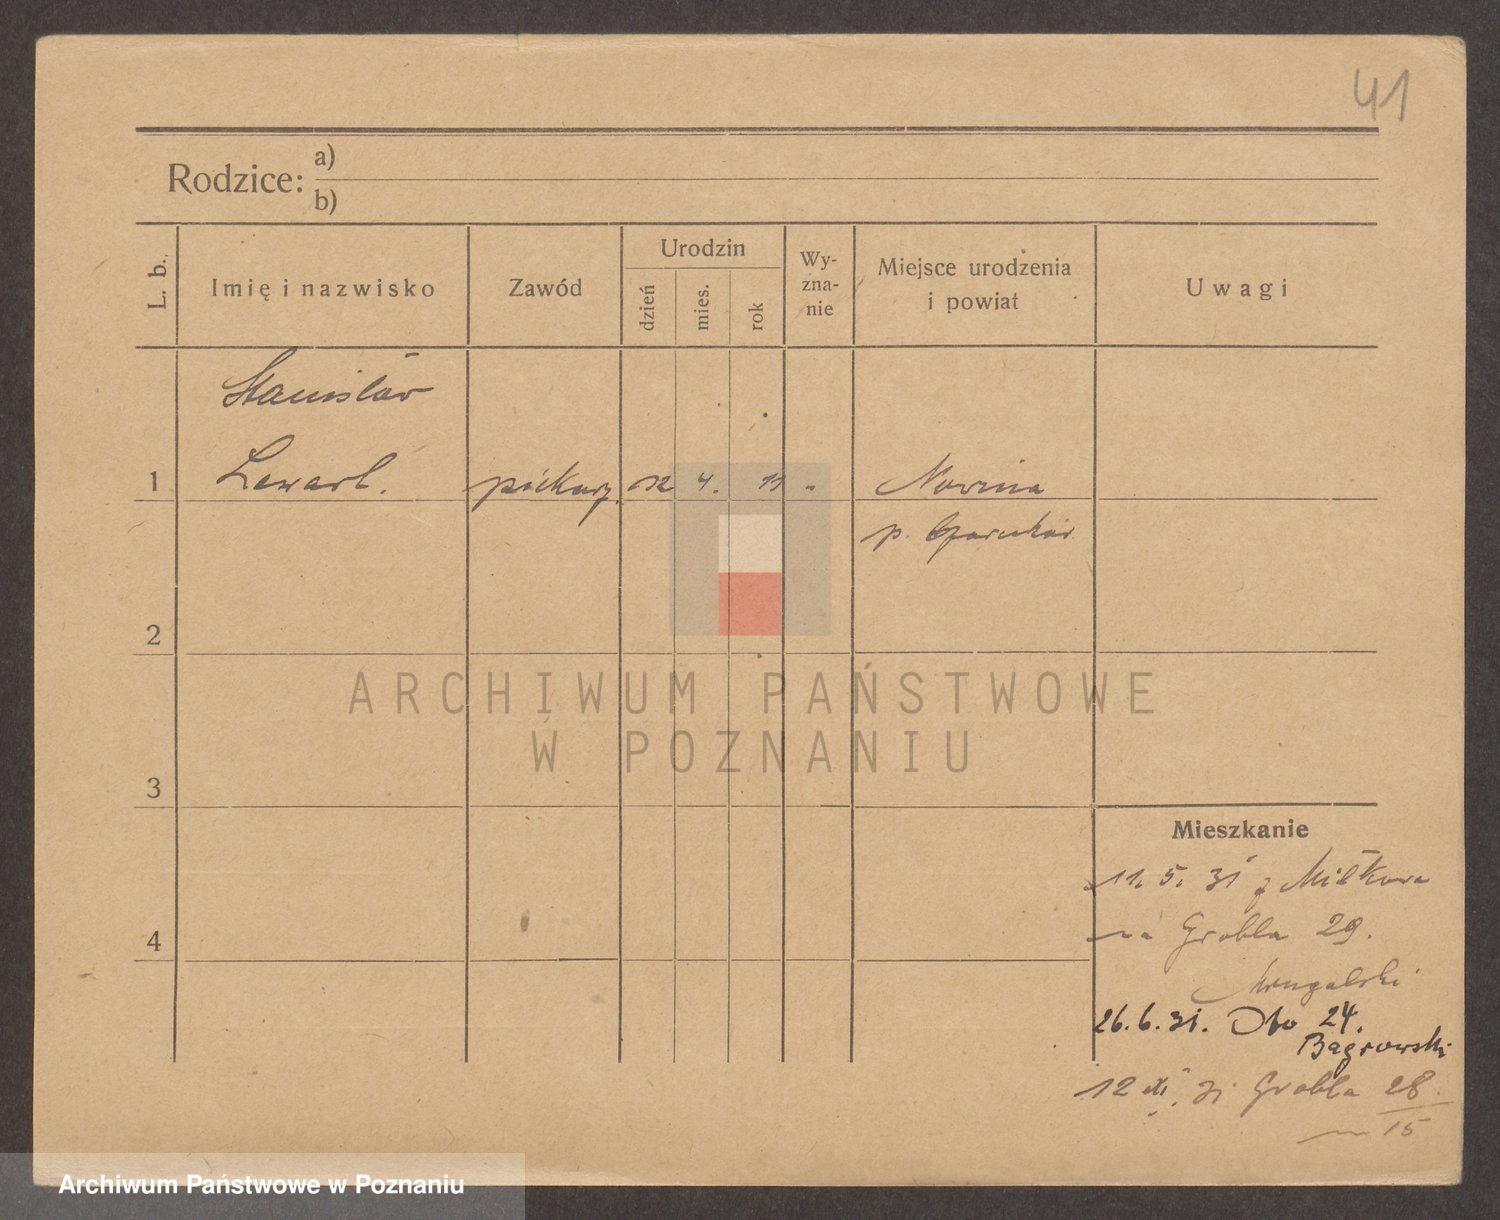 41
Rodzice:
a)
b)
L. b.
Imię i nazwisko
Zawód
Urodzin
dzień
mies.
rok
Wy-
zna-
nie
Miejsce urodzenia
i powiat
Uwagi
Stanisław
1 Lewart. piekarz. 12 4. 11 Nowina
p.
2
3
4
ARCHIWUM PAŃSTWOWE
W POZNANIU
Mieszkanie
11. 5. 31 z
na Grobla 29.
26. 6. 31. 24.
Bagrowski
12 XI. 31 Grobla 28
15
Archiwum Państwowe w Poznaniu